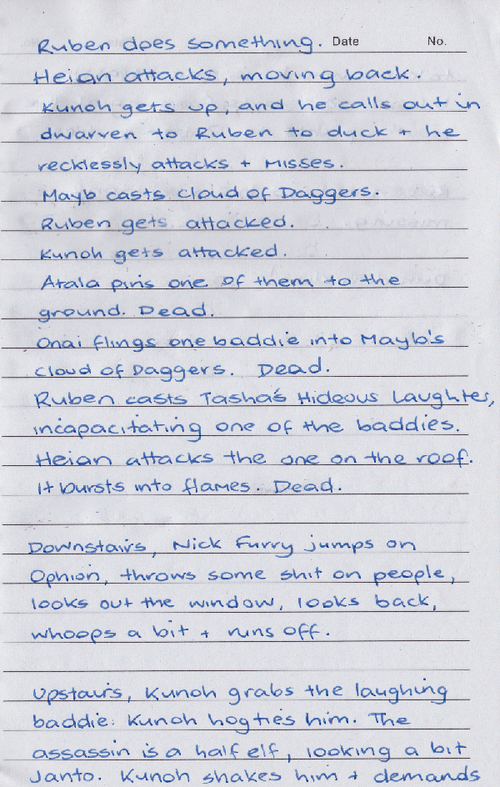 Ruben does something. Date No.
Heian attacks, moving back.
Kunoh gets up, and he calls out in
dwarven to Ruben to duck + he
recklessly attacks + misses.
Mayb casts Cloud of Daggers.
Ruben gets attacked.
Kunoh gets attacked.
Atala pins one of them to the
ground. Dead.
Onai flings one baddie into Mayb's
Cloud of Daggers. Dead.
Ruben casts Tasha's Hideous Laughter,
incapacitating one of the baddies.
Heian attacks the one on the roof.
It bursts into flames. Dead.
Downstairs, Nick Furry jumps on
Ophion, throws some shit on people,
looks out the window, looks back,
whoops a bit + runs off.
Upstairs, Kunoh grabs the laughing
baddie. Kunoh hogties him. The
assassin is a half elf, looking a bit
Janto. Kunoh shakes him + demands